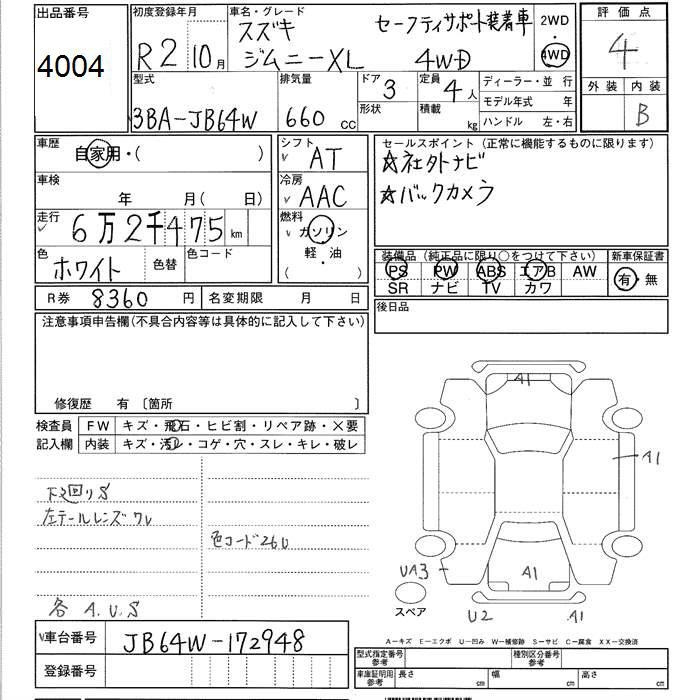 出品番号
4004
初度登録年月
R2 10月
車名・グレード
スズキ セーフティサポート装着車
ジムニーXL 4WD
2WD
・
4WD
評価点
4
外装 内装
B
型式
3BA-JB64W
排気量
660 cc
ドア
3
形状
定員
4人
積載
kg
ディーラー・並行
モデル年式 年
ハンドル 左・右
車歴
自家用・( )
車検
年 月( 日)
走行
6万2千475km
色
ホワイト
色替
色コード
シフト
AT
冷房
AAC
燃料
ガソリン
軽・油
( )
セールスポイント(正常に機能するものに限ります)
☆社外ナビ
☆バックカメラ
装備品(純正品に限り○をつけて下さい)
PS PW ABS エアB AW
SR ナビ TV カワ
新車保証書
有・無
R券 8360円
名変期限 月 日
後日品
注意事項申告欄(不具合内容等は具体的に記入して下さい)
修復歴 有 〔箇所 〕
検査員
記入欄
FW キズ・飛石・ヒビ割・リペア跡・×要
内装 キズ・汚レ・コゲ・穴・スレ・キレ・破レ
下廻りS
左テールレンズワレ
色コード26U
各 A.U.S
A1
A1
UA3
A1
U2
A1
スペア
A-キズ E-エクボ U-凹み W-補修跡 S-サビ C-腐食 XX-交換済
車台番号 JB64W-172948
登録番号
型式指定番号
参考
種別区分番号
参考
車庫証明用
参考
長さ cm 幅 cm 高さ cm